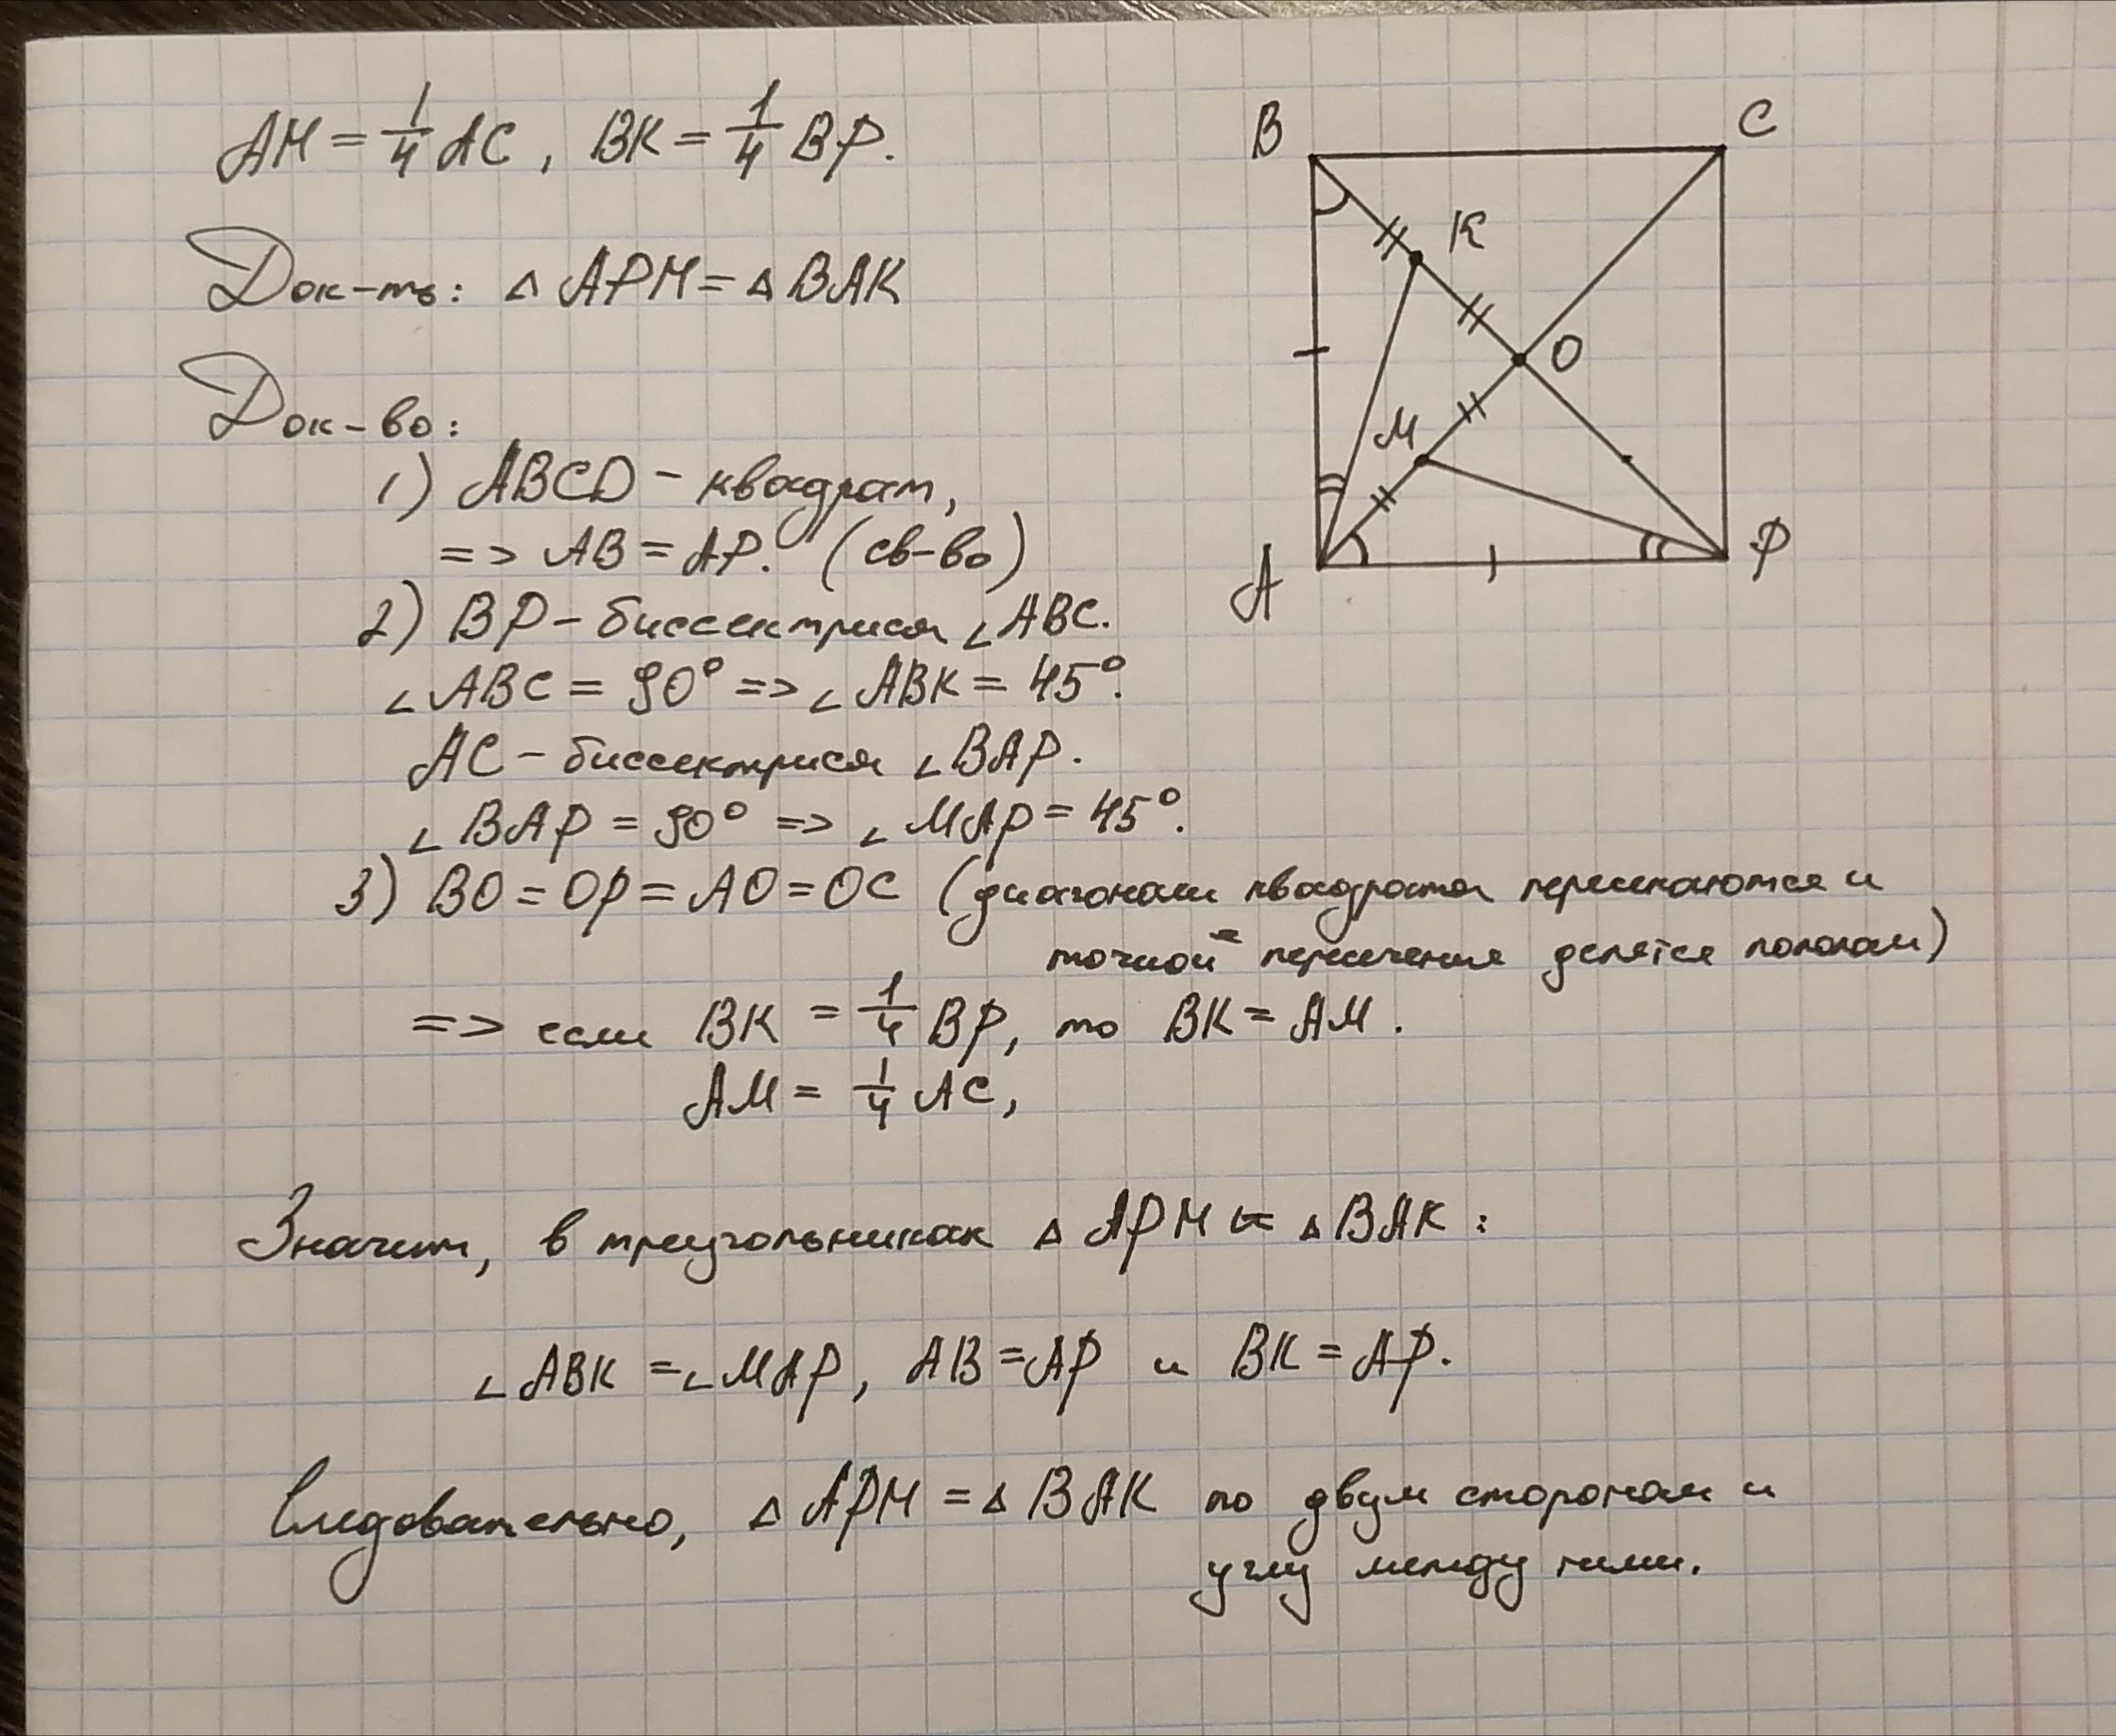 AM = 1/4 AC, BK = 1/4 BP.
Док-ть: △ APM = △ BAK
Док-во:
1) ABCD – квадрат,
=> AB = AP. (св-во)
2) BP – биссектриса ∠ABC.
∠ABC = 90° => ∠ABK = 45°.
AC – биссектриса ∠BAP.
∠BAP = 90° => ∠MAP = 45°.
3) BO = OP = AO = OC (диагонали квадрата пересекаются и
точкой пересечения делятся пополам)
=> если BK = 1/4 BP, то BK = AM.
AM = 1/4 AC,
Значит, в треугольниках △ APM и △ BAK:
∠ABK = ∠MAP, AB = AP и BK = AP.
Следовательно, △ APM = △ BAK по двум сторонам и
углу между ними.
B
C
K
O
M
A
P